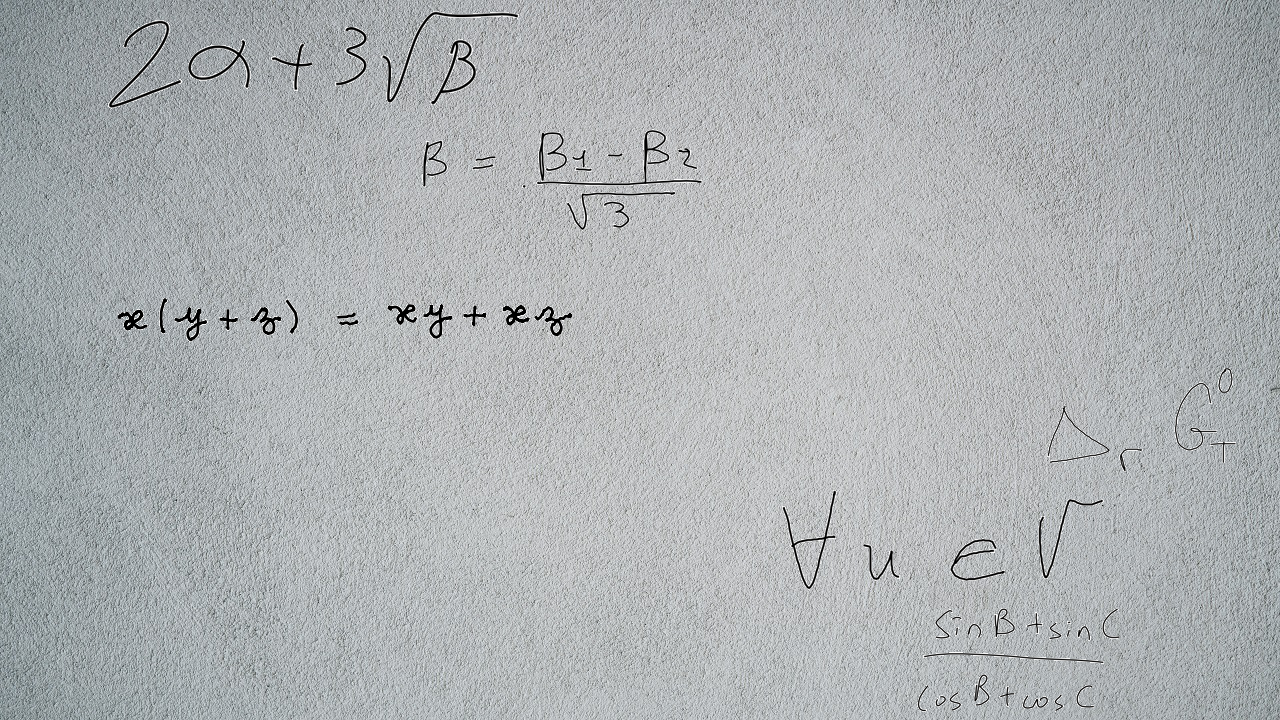 2α + 3√β
β = (β₁ - β₂) / √3
x(y + z) = xy + xz
Δᵣ G⁰_T
∀ u ∈ V
(sin B + sin C) / (cos B + cos C)